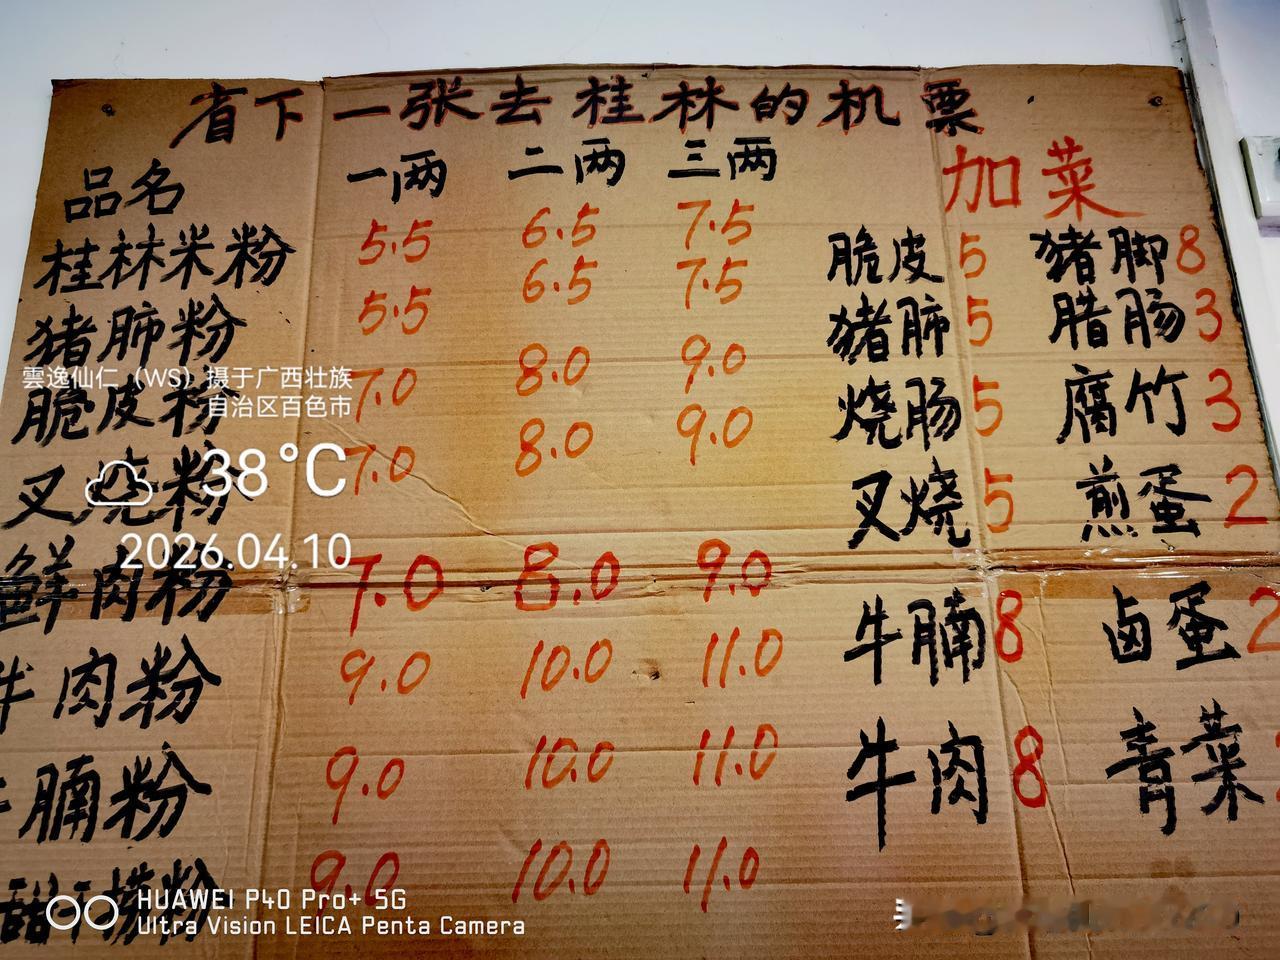 省下一张去桂林的机票
品名 一两 二两 三两
桂林米粉 5.5 6.5 7.5
猪肺粉 5.5 6.5 7.5
脆皮粉 7.0 8.0 9.0
叉烧粉 7.0 8.0 9.0
鲜肉粉 7.0 8.0 9.0
牛肉粉 9.0 10.0 11.0
牛腩粉 9.0 10.0 11.0
9.0 10.0 11.0
加菜
脆皮 5 猪脚 8
猪肺 5 腊肠 3
烧肠 5 腐竹 3
叉烧 5 煎蛋 2
牛腩 8 卤蛋 2
牛肉 8 青菜
雲逸仙仁（WS）摄于广西壮族
自治区百色市
38°C
2026.04.10
HUAWEI P40 Pro+ 5G
Ultra Vision LEICA Penta Camera